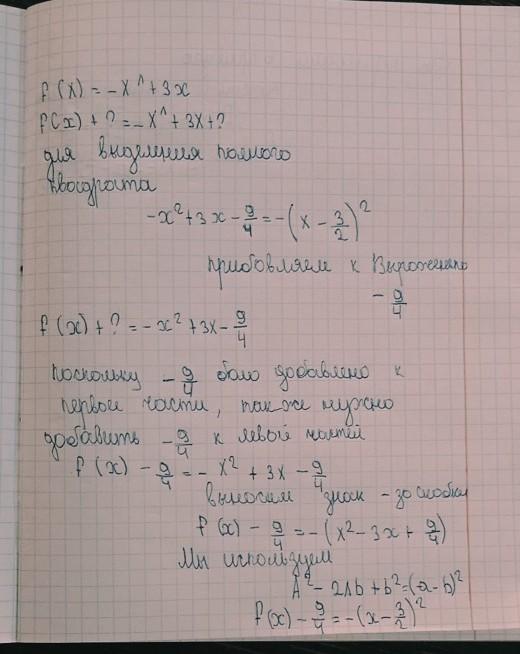 f(x) = -x^ + 3x
f(x) + ? = -x^ + 3x + ?
для выделения полного
квадрата
-x² + 3x - 9/4 = -(x - 3/2)²
прибовляем к Выражению
- 9/4
f(x) + ? = -x² + 3x - 9/4
поскольку - 9/4 было добавлено к
первой части, также нужно
добавить - 9/4 к левой частей
f(x) - 9/4 = -x² + 3x - 9/4
выносим знак - за скобки
f(x) - 9/4 = -(x² - 3x + 9/4)
Мы используем
A² - 2Ab + b² = (a - b)²
f(x) - 9/4 = -(x - 3/2)²